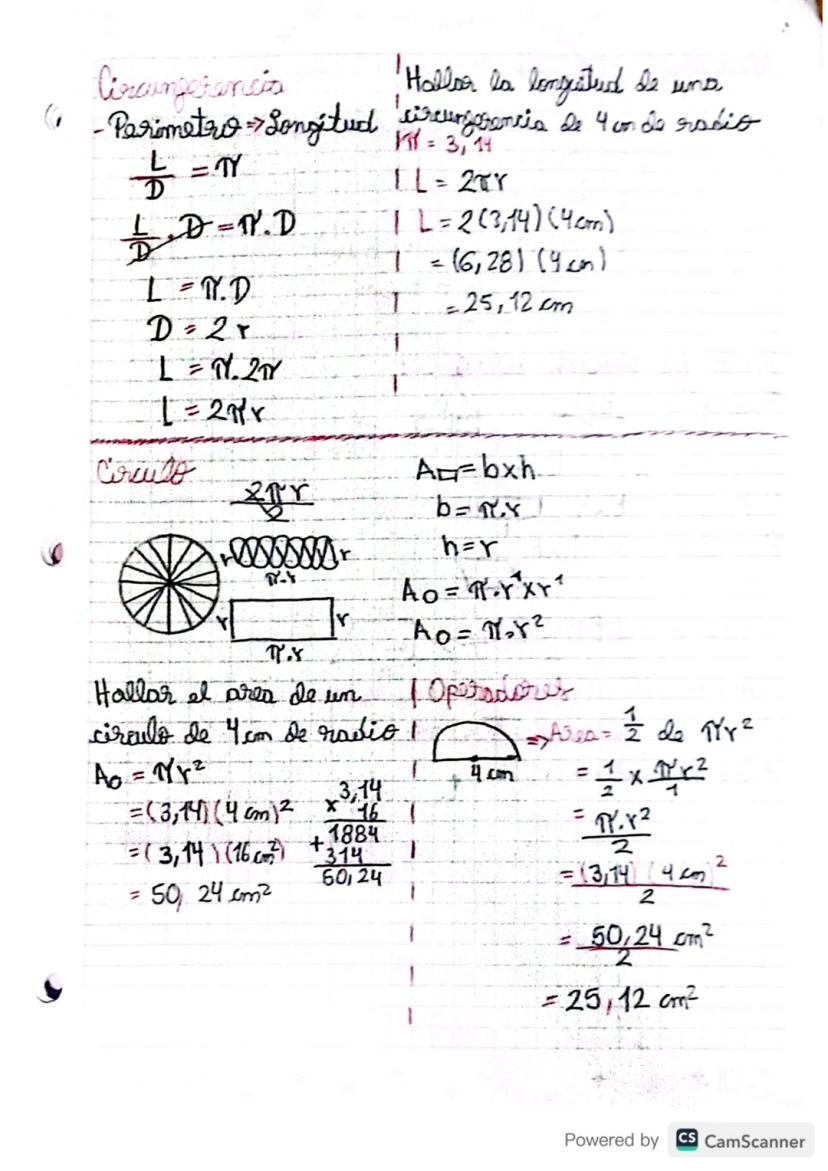 Circunferencia
- Parimetro => Longitud
L/D = π
L/D . D = π.D
L = π.D
D = 2 r
L = π.2π
L = 2πr
Hallar la longitud de una
circunferencia de 4 cm de radio
π = 3,14
L = 2πr
L = 2(3,14)(4cm)
= (6,28) (4 cm)
= 25,12 cm
Circulo
2πr/2
r r
π.r
r r
π.r
A▭ = bxh
b = π.r
h = r
A○ = π.r¹xr¹
A○ = π.r²
Hallar el area de un
circulo de 4 cm de radio
A○ = πr²
= (3,14)(4 cm)²
= (3,14)(16 cm²)
= 50,24 cm²
3,14
x 16
1884
+ 314
50,24
Operadores
4 cm
=> Area = 1/2 de πr²
= 1/2 x πr²/1
= π.r²/2
= (3,14) (4 cm)²/2
= 50,24 cm²/2
= 25,12 cm²
Powered by CS CamScanner